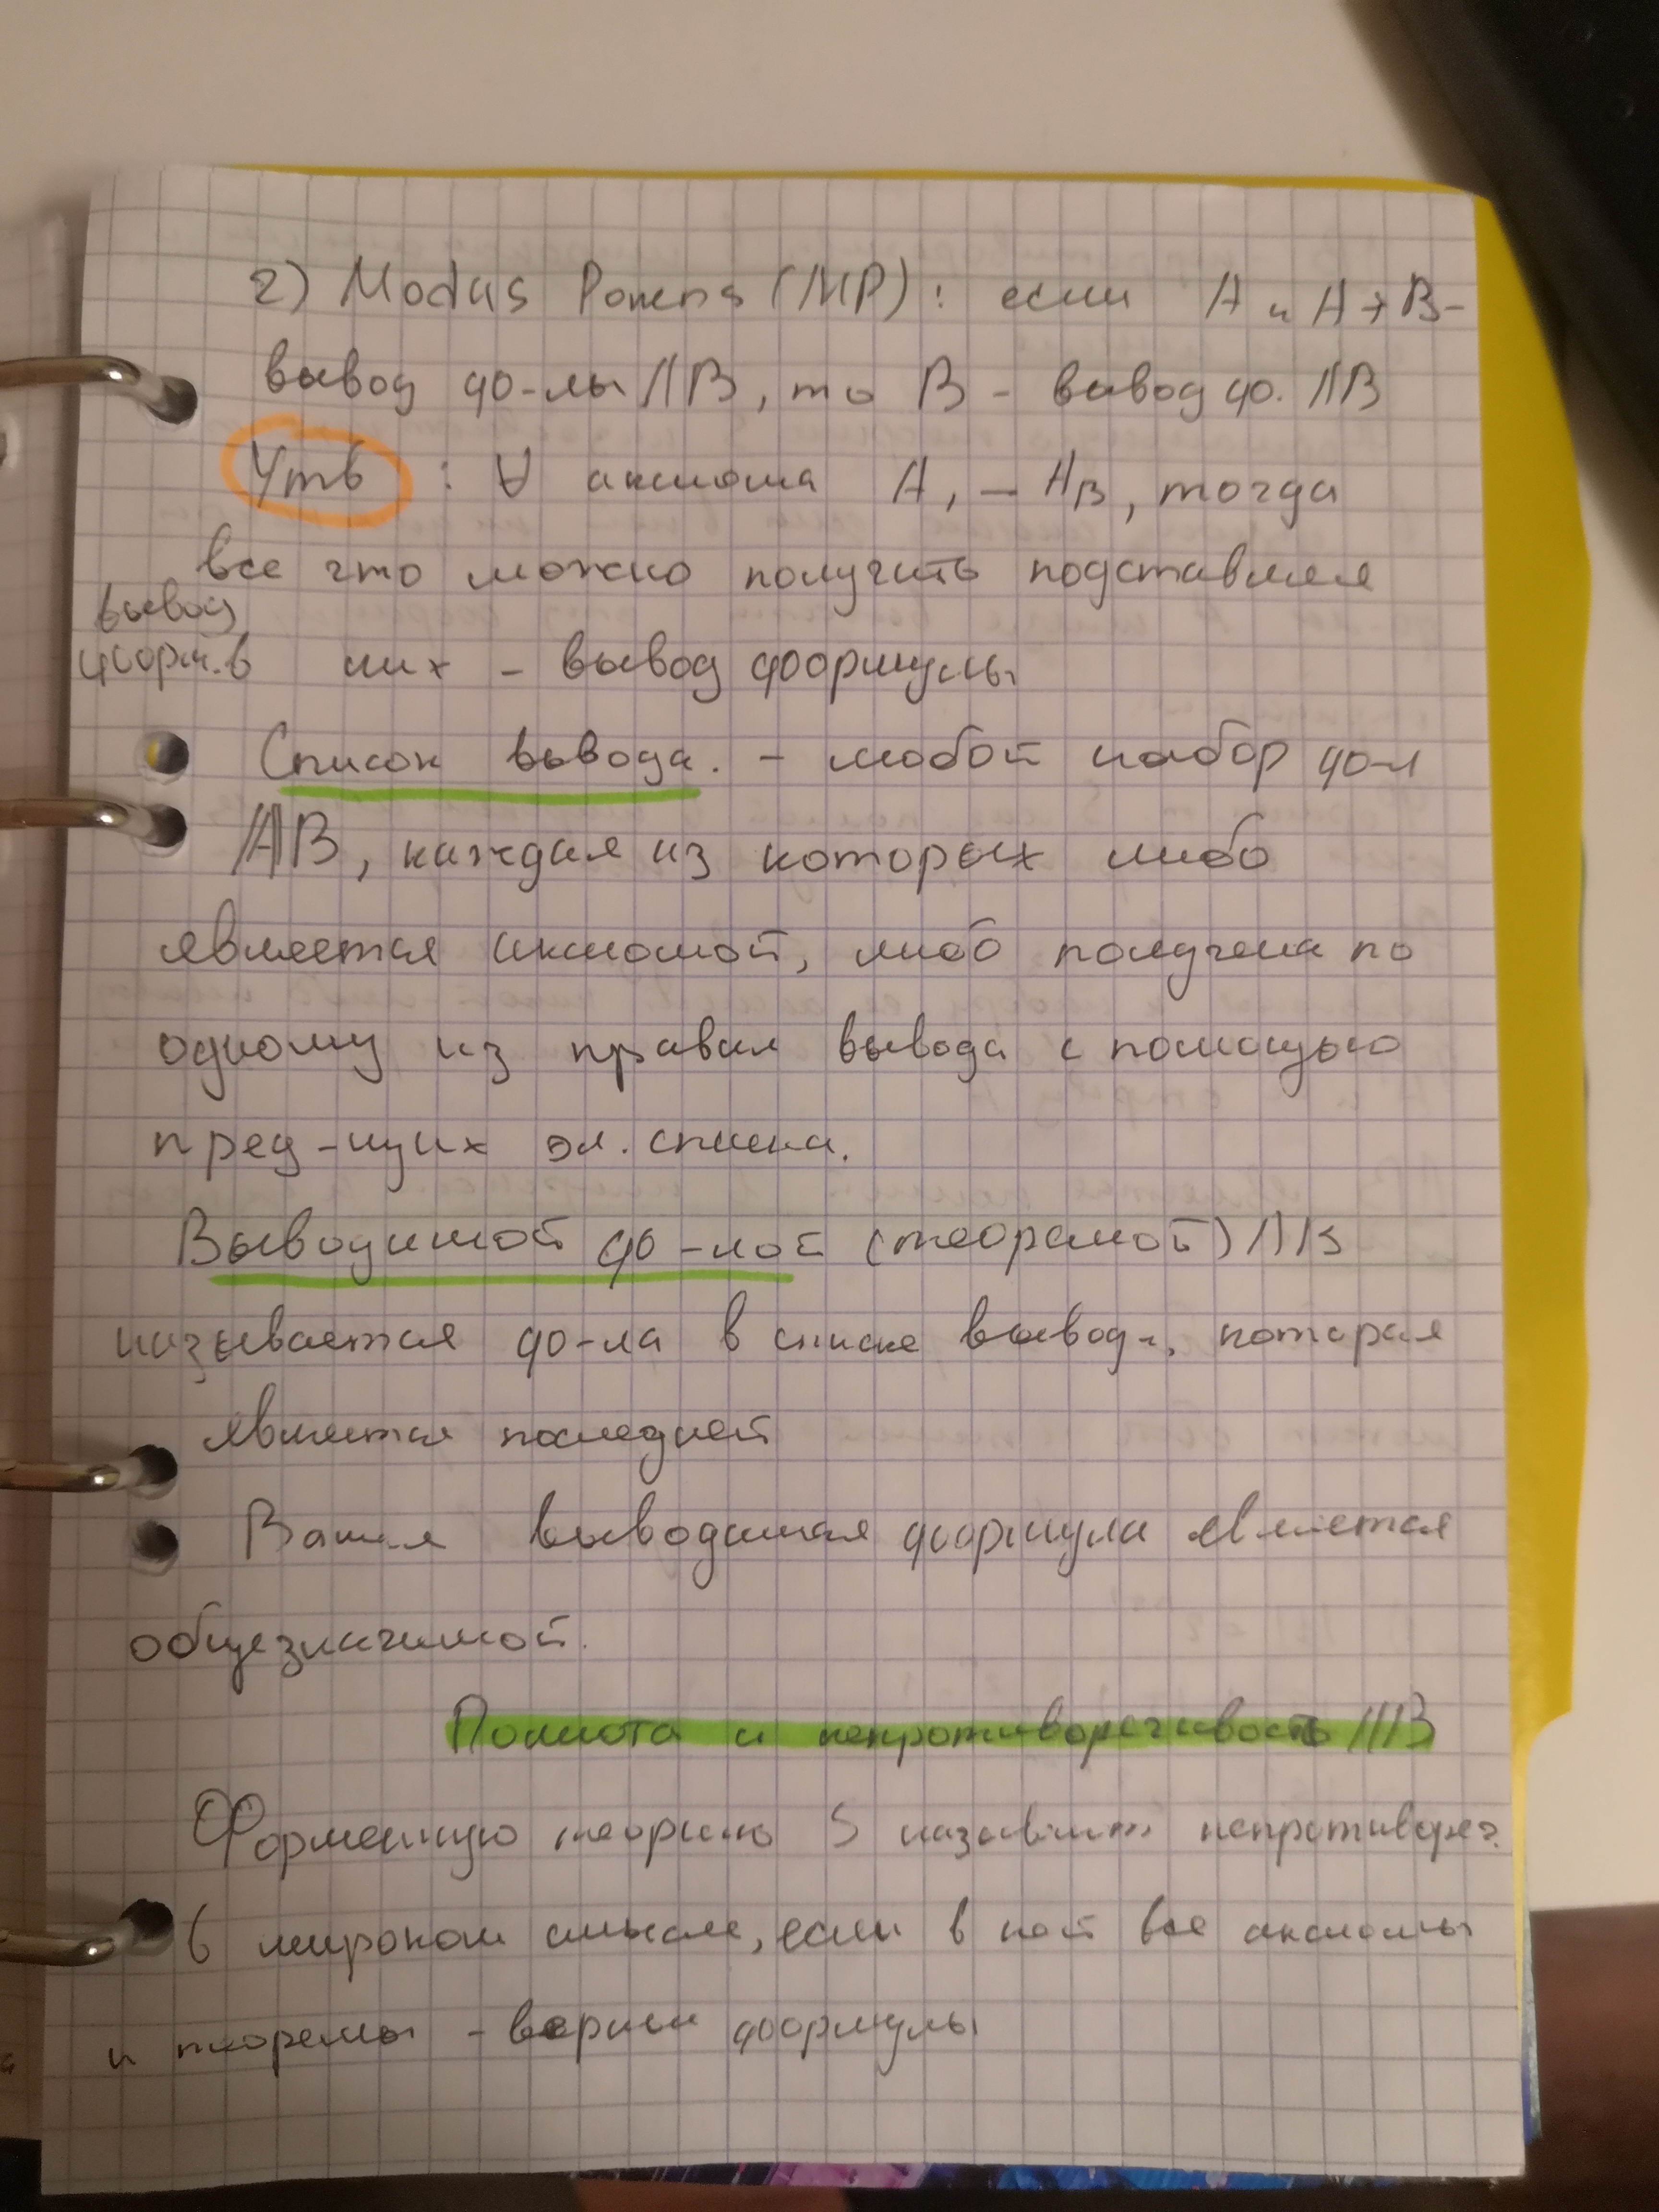 2) Modus Ponens (MP): если A и A → B –
вывод ф-лы ИВ, то B – вывод ф. ИВ
Утв : ∀ аксиома A₁ – A₁₃, тогда
все что можно получить подставляя
вывод
форм. в них – вывод формулы
Список вывода. – любой набор ф-л
ИВ, каждая из которых либо
является аксиомой, либо получена по
одному из правил вывода с помощью
пред-щих эл. списка.
Выводимой ф-лой (теоремой) ИВ
называется ф-ла в списке вывода, которая
является последней
выводимая формула является
общезначимой.
Полнота и непротиворечивость ИВ
Форменную теорию S называют непротивореч.
в широком смысле, если в ней все аксиомы
и теоремы – верные формулы